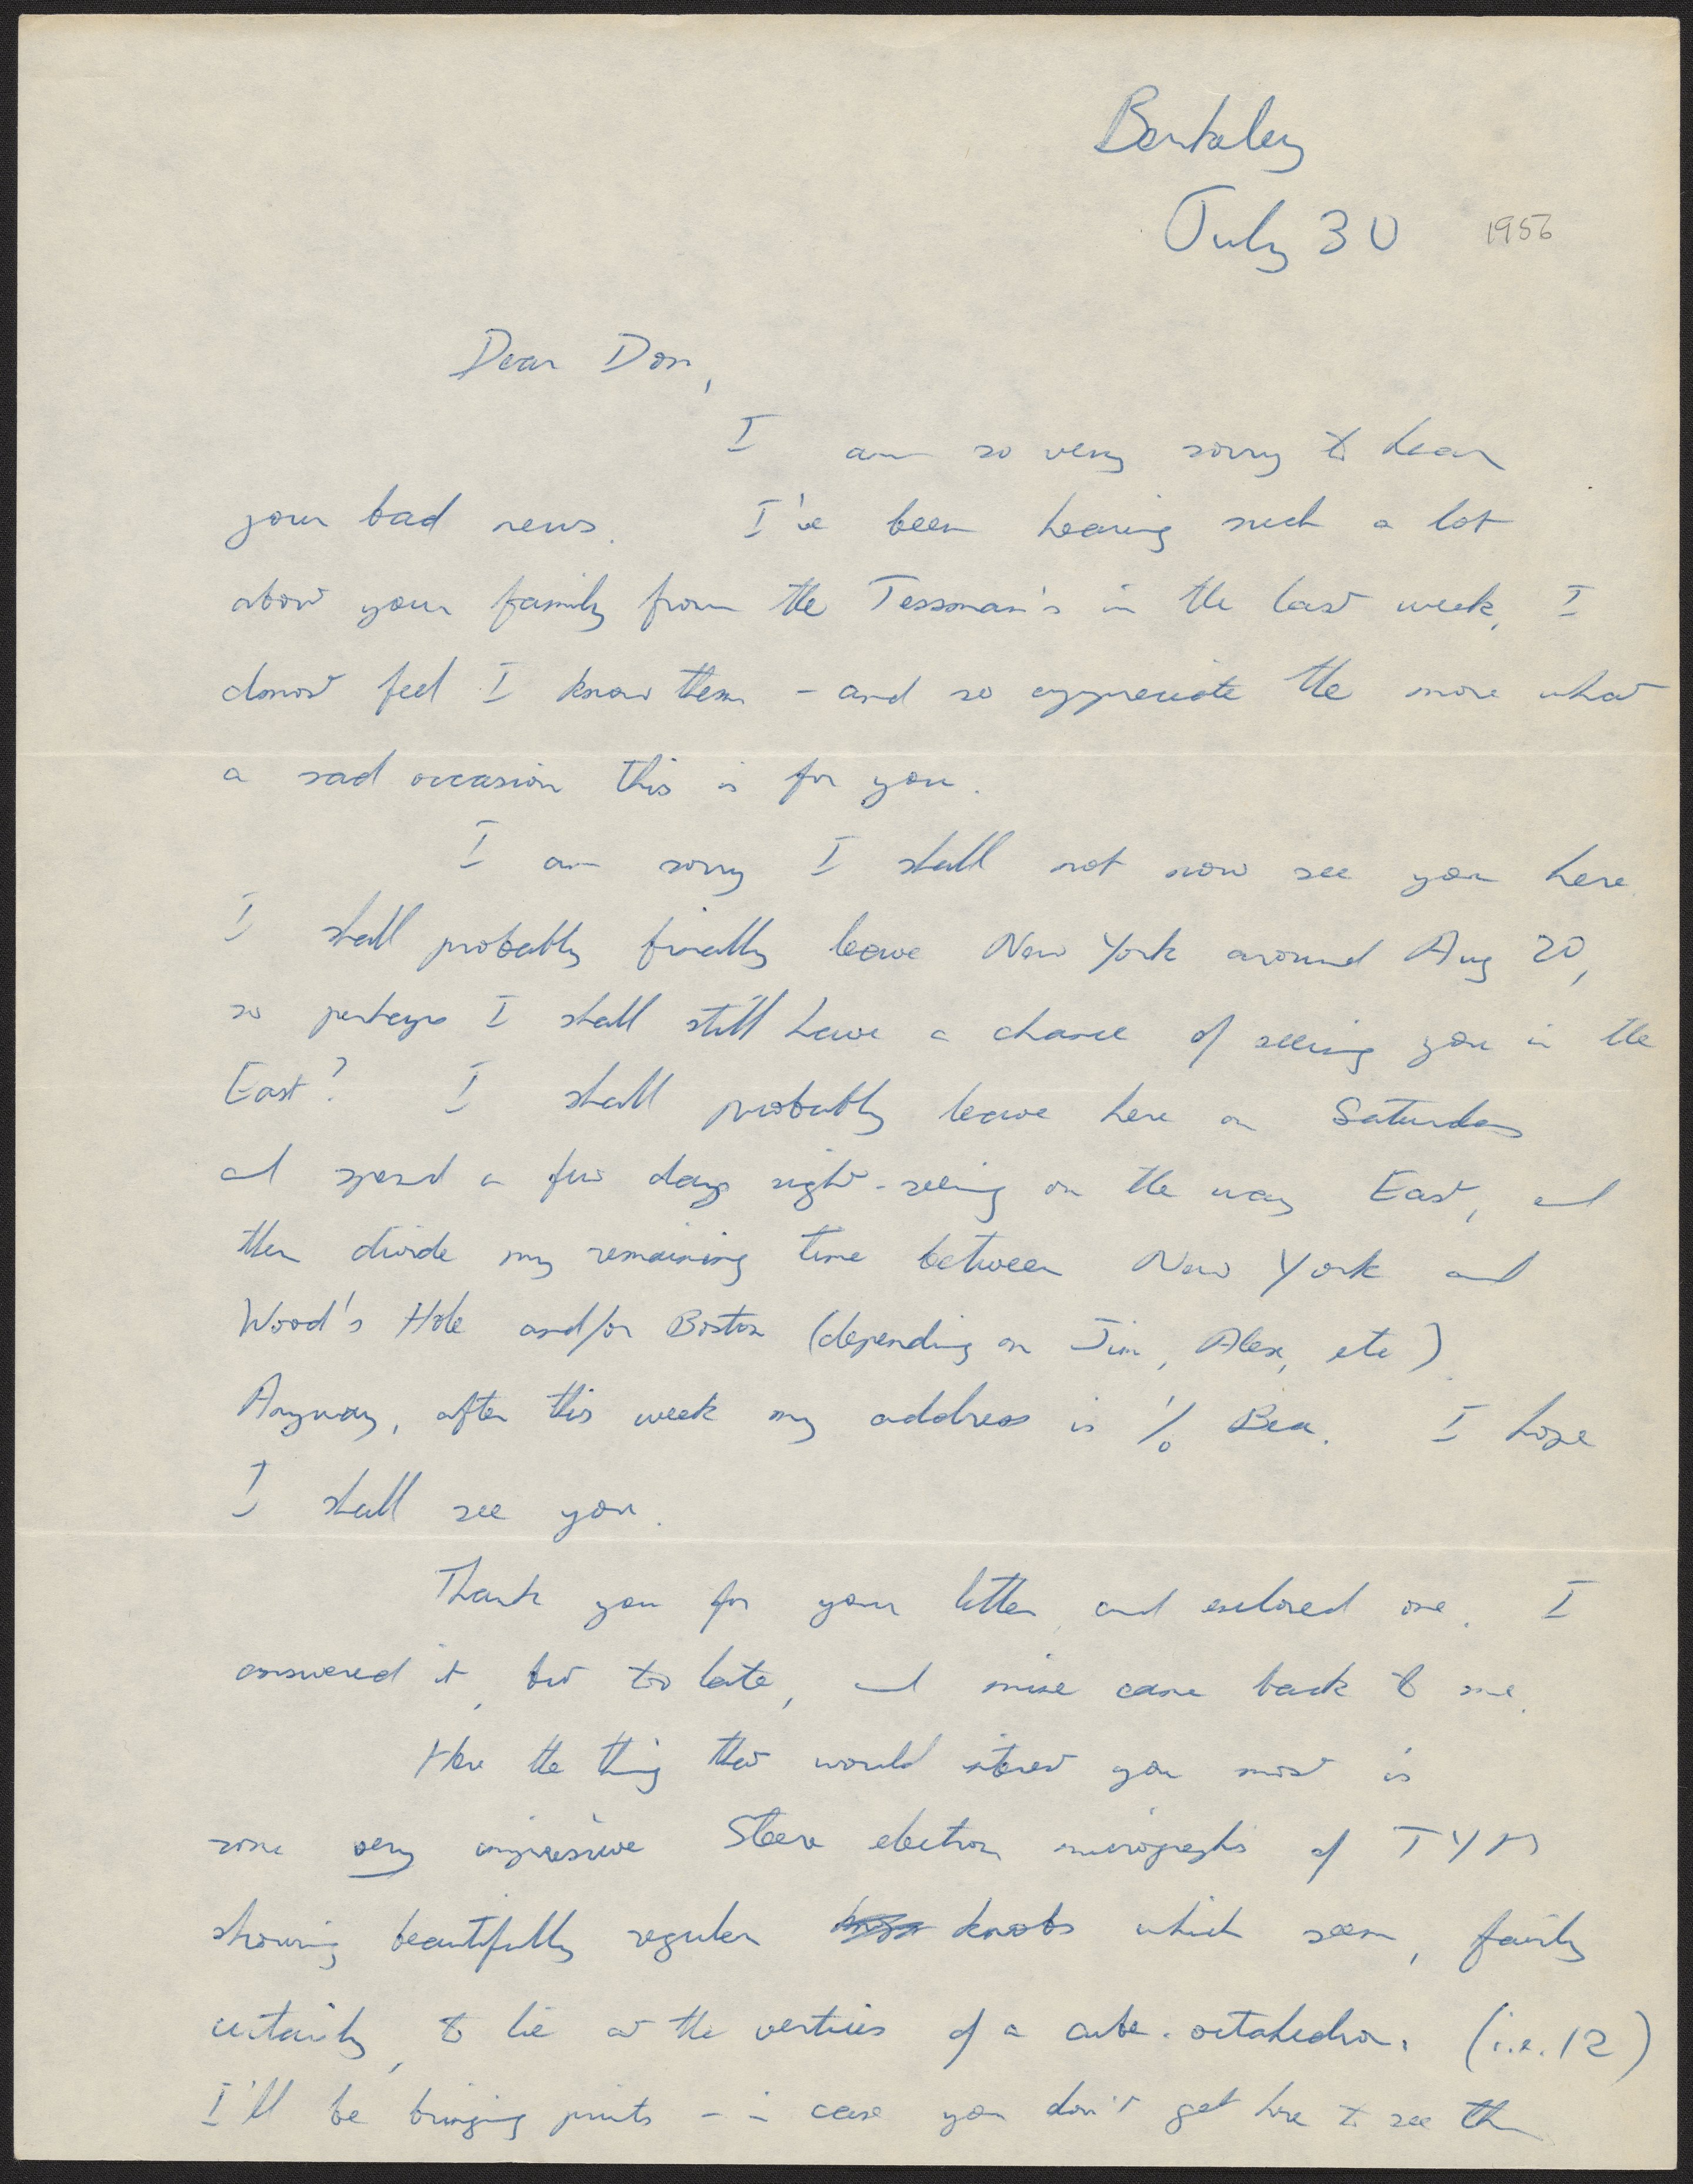 Berkeley
July 30 1956
Dear Don,
I am so very sorry to hear
your bad news. I've been hearing such a lot
about your family from the Tessman's in the last week, I
almost feel I know them - and so appreciate the more what
a sad occasion this is for you.
I am sorry I shall not now see you here.
I shall probably finally leave New York around Aug 20,
so perhaps I shall still have a chance of seeing you in the
East? I shall probably leave here on Saturday
and spend a few days sight-seeing on the way East, and
then divide my remaining time between New York and
Wood's Hole and/or Boston (depending on Jim, Alex, etc).
Anyway, after this week my address is c/o Bea. I hope
I shall see you.
Thank you for your letter and enclosed one. I
answered it, but too late, and mine came back to me.
Here the thing that would interest you most is
some very impressive Steere electron micrographs of TYM
showing beautifully regular knobs which seem, fairly
certainly, to lie at the vertices of a cube-octahedron. (i.e. 12)
I'll be bringing prints - in case you don't get here to see them